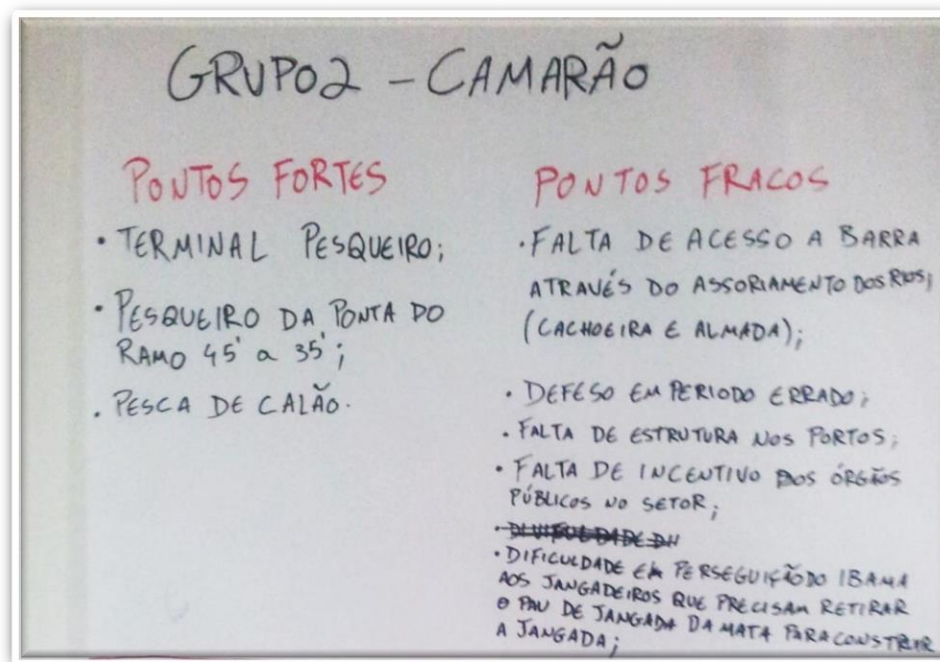 GRUPO2 - CAMARÃO
PONTOS FORTES
• TERMINAL PESQUEIRO;
• PESQUEIRO DA PONTA DO
RAMO 45' a 35';
• PESCA DE CALÃO.
PONTOS FRACOS
• FALTA DE ACESSO A BARRA
ATRAVÉS DO ASSORIAMENTO DOS RIOS;
(CACHOEIRA E ALMADA);
• DEFESO EM PERIODO ERRADO;
• FALTA DE ESTRUTURA NOS PORTOS;
• FALTA DE INCENTIVO DOS ÓRGÃOS
PÚBLICOS NO SETOR;
• DIFICULDADE EM PERSEGUIÇÃO DO IBAMA
AOS JANGADEIROS QUE PRECISAM RETIRAR
O PAU DE JANGADA DA MATA PARA CONSTRUIR
A JANGADA;